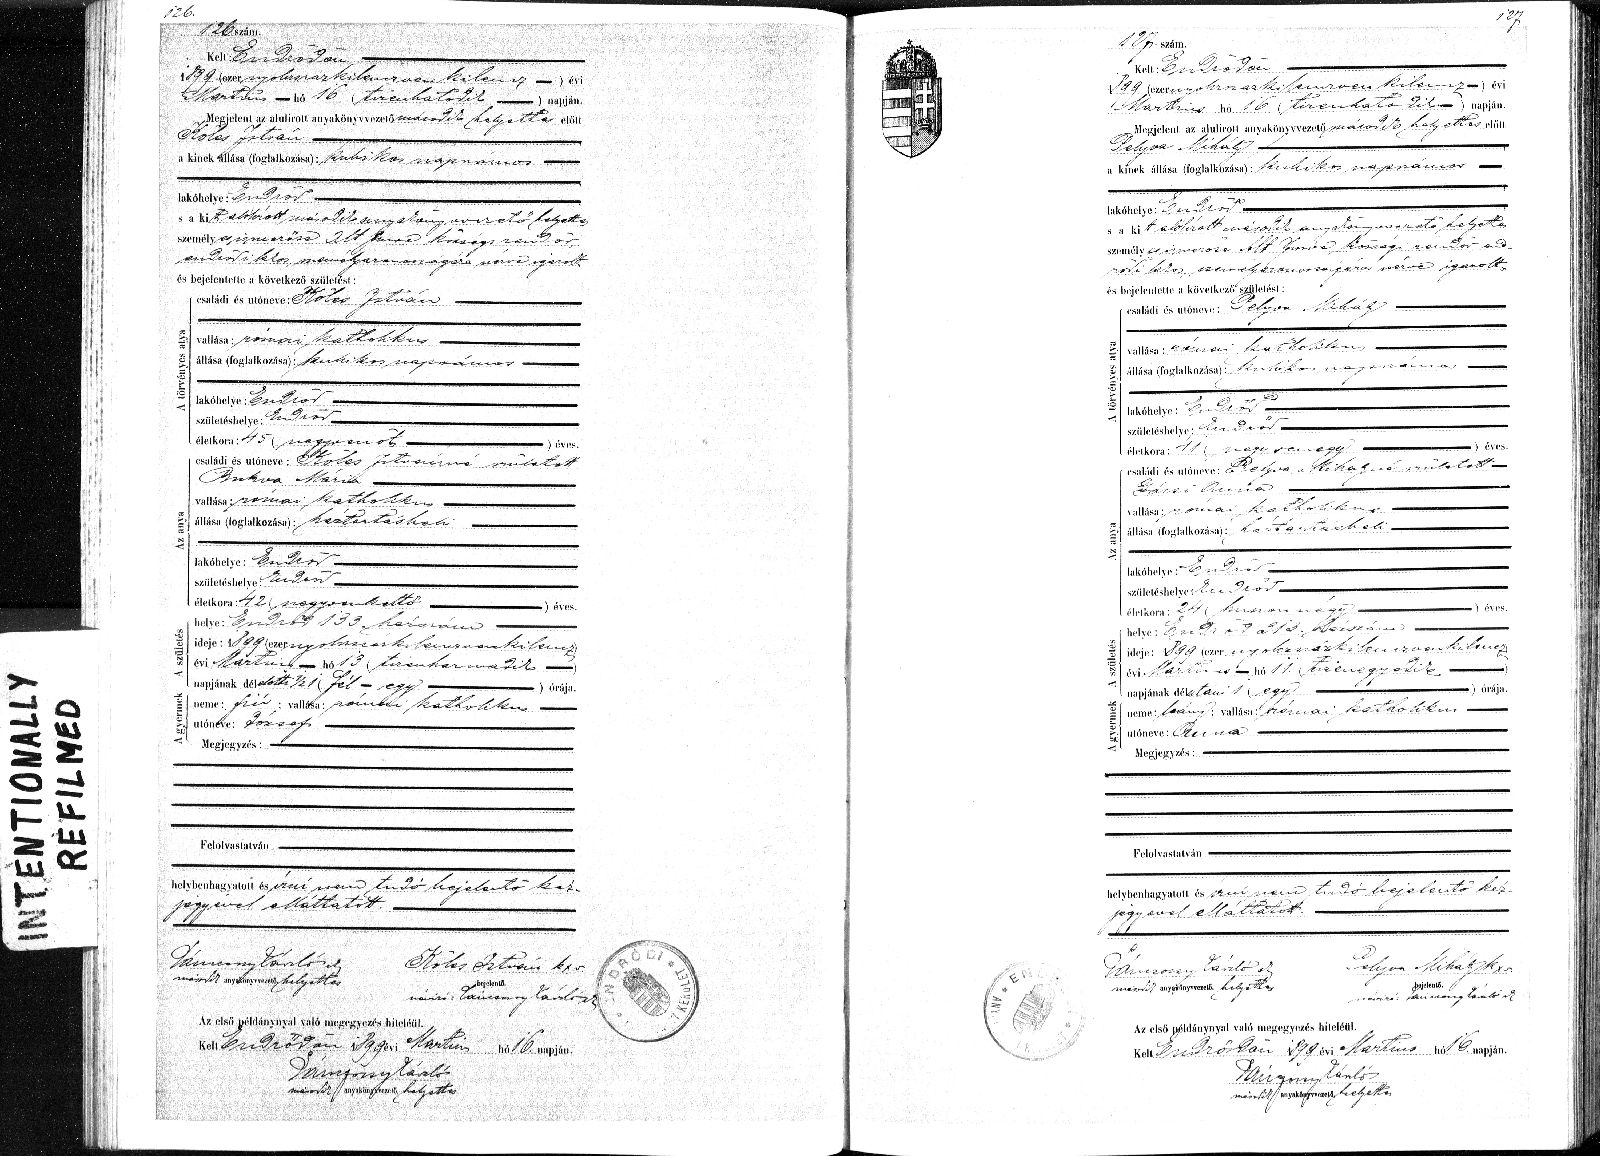 126.
126 szám.
Kelt Endrődön
1899 (ezer nyolczszázkilenczvenkilencz) évi
Martius hó 16 (tizenhatodik) napján.
Megjelent az alulirott anyakönyvvezető második helyettes előtt
Köles István
a kinek állása (foglalkozása): kubikos napszámos
lakóhelye: Endrőd
s a kit alólirott második anyakönyvvezető helyettes
személy
és bejelentette a következő születést:
A törvényes atya
családi és utóneve: Köles István
vallása: római katholikus
állása (foglalkozása): kubikos napszámos
lakóhelye: Endrőd
születéshelye: Endrőd
életkora: 45 (negyvenöt) éves.
Az anya
családi és utóneve: Köles Istvánné született
Bukva Mária
vallása: római katholikus
állása (foglalkozása): háztartásbeli
lakóhelye: Endrőd
születéshelye: Endrőd
életkora: 42 (negyvenkettő) éves.
A születés
helye: Endrőd 133 házszám
ideje: 1899 (ezer nyolczszázkilenczvenkilencz)
évi Martius hó 13 (tizenharmadik)
napjának délelőtti 1/2 1 (fél egy) órája.
A gyermek
neme: fiú; vallása: római katholikus
utóneve: József
Megjegyzés:
Felolvastatván
helybenhagyatott és irni nem tudó bejelentő kéz-
jegyével elláttatott.
Köles István kxv
második anyakönyvvezető helyettes
bejelentő.
Az első példánynyal való megegyezés hiteléül.
Kelt Endrődön 1899 évi Martius hó 16 napján.
második anyakönyvvezető helyettes
127
127 szám.
Kelt: Endrődön
1899 (ezer nyolczszázkilenczvenkilencz) évi
Martius hó 16 (tizenhatodik) napján.
Megjelent az alulirott anyakönyvvezető második helyettes előtt
Pelyva Mihály
a kinek állása (foglalkozása): kubikos napszámos
lakóhelye: Endrőd
s a kit alólirott második anyakönyvvezető helyettes
személy
és bejelentette a következő születést:
A törvényes atya
családi és utóneve: Pelyva Mihály
vallása: római katholikus
állása (foglalkozása): kubikos napszámos
lakóhelye: Endrőd
születéshelye: Endrőd
életkora: 41 (negyvenegy) éves.
Az anya
családi és utóneve: Pelyva Mihályné született
Anna
vallása: római katholikus
állása (foglalkozása): háztartásbeli
lakóhelye: Endrőd
születéshelye: Endrőd
életkora: 24 (huszonnégy) éves.
A születés
helye: Endrőd házszám
ideje: 1899 (ezer nyolczszázkilenczvenkilencz)
évi Martius hó 11 (tizenegyedik)
napjának délutani 1 (egy) órája.
A gyermek
neme: leány; vallása: római katholikus
utóneve: Anna
Megjegyzés:
Felolvastatván
helybenhagyatott és irni nem tudó bejelentő kéz-
jegyével elláttatott.
Pelyva Mihály kxv
második anyakönyvvezető helyettes
bejelentő.
Az első példánynyal való megegyezés hiteléül.
Kelt Endrődön 1899 évi Martius hó 16 napján.
második anyakönyvvezető helyettes
INTENTIONALLY
REFILMED